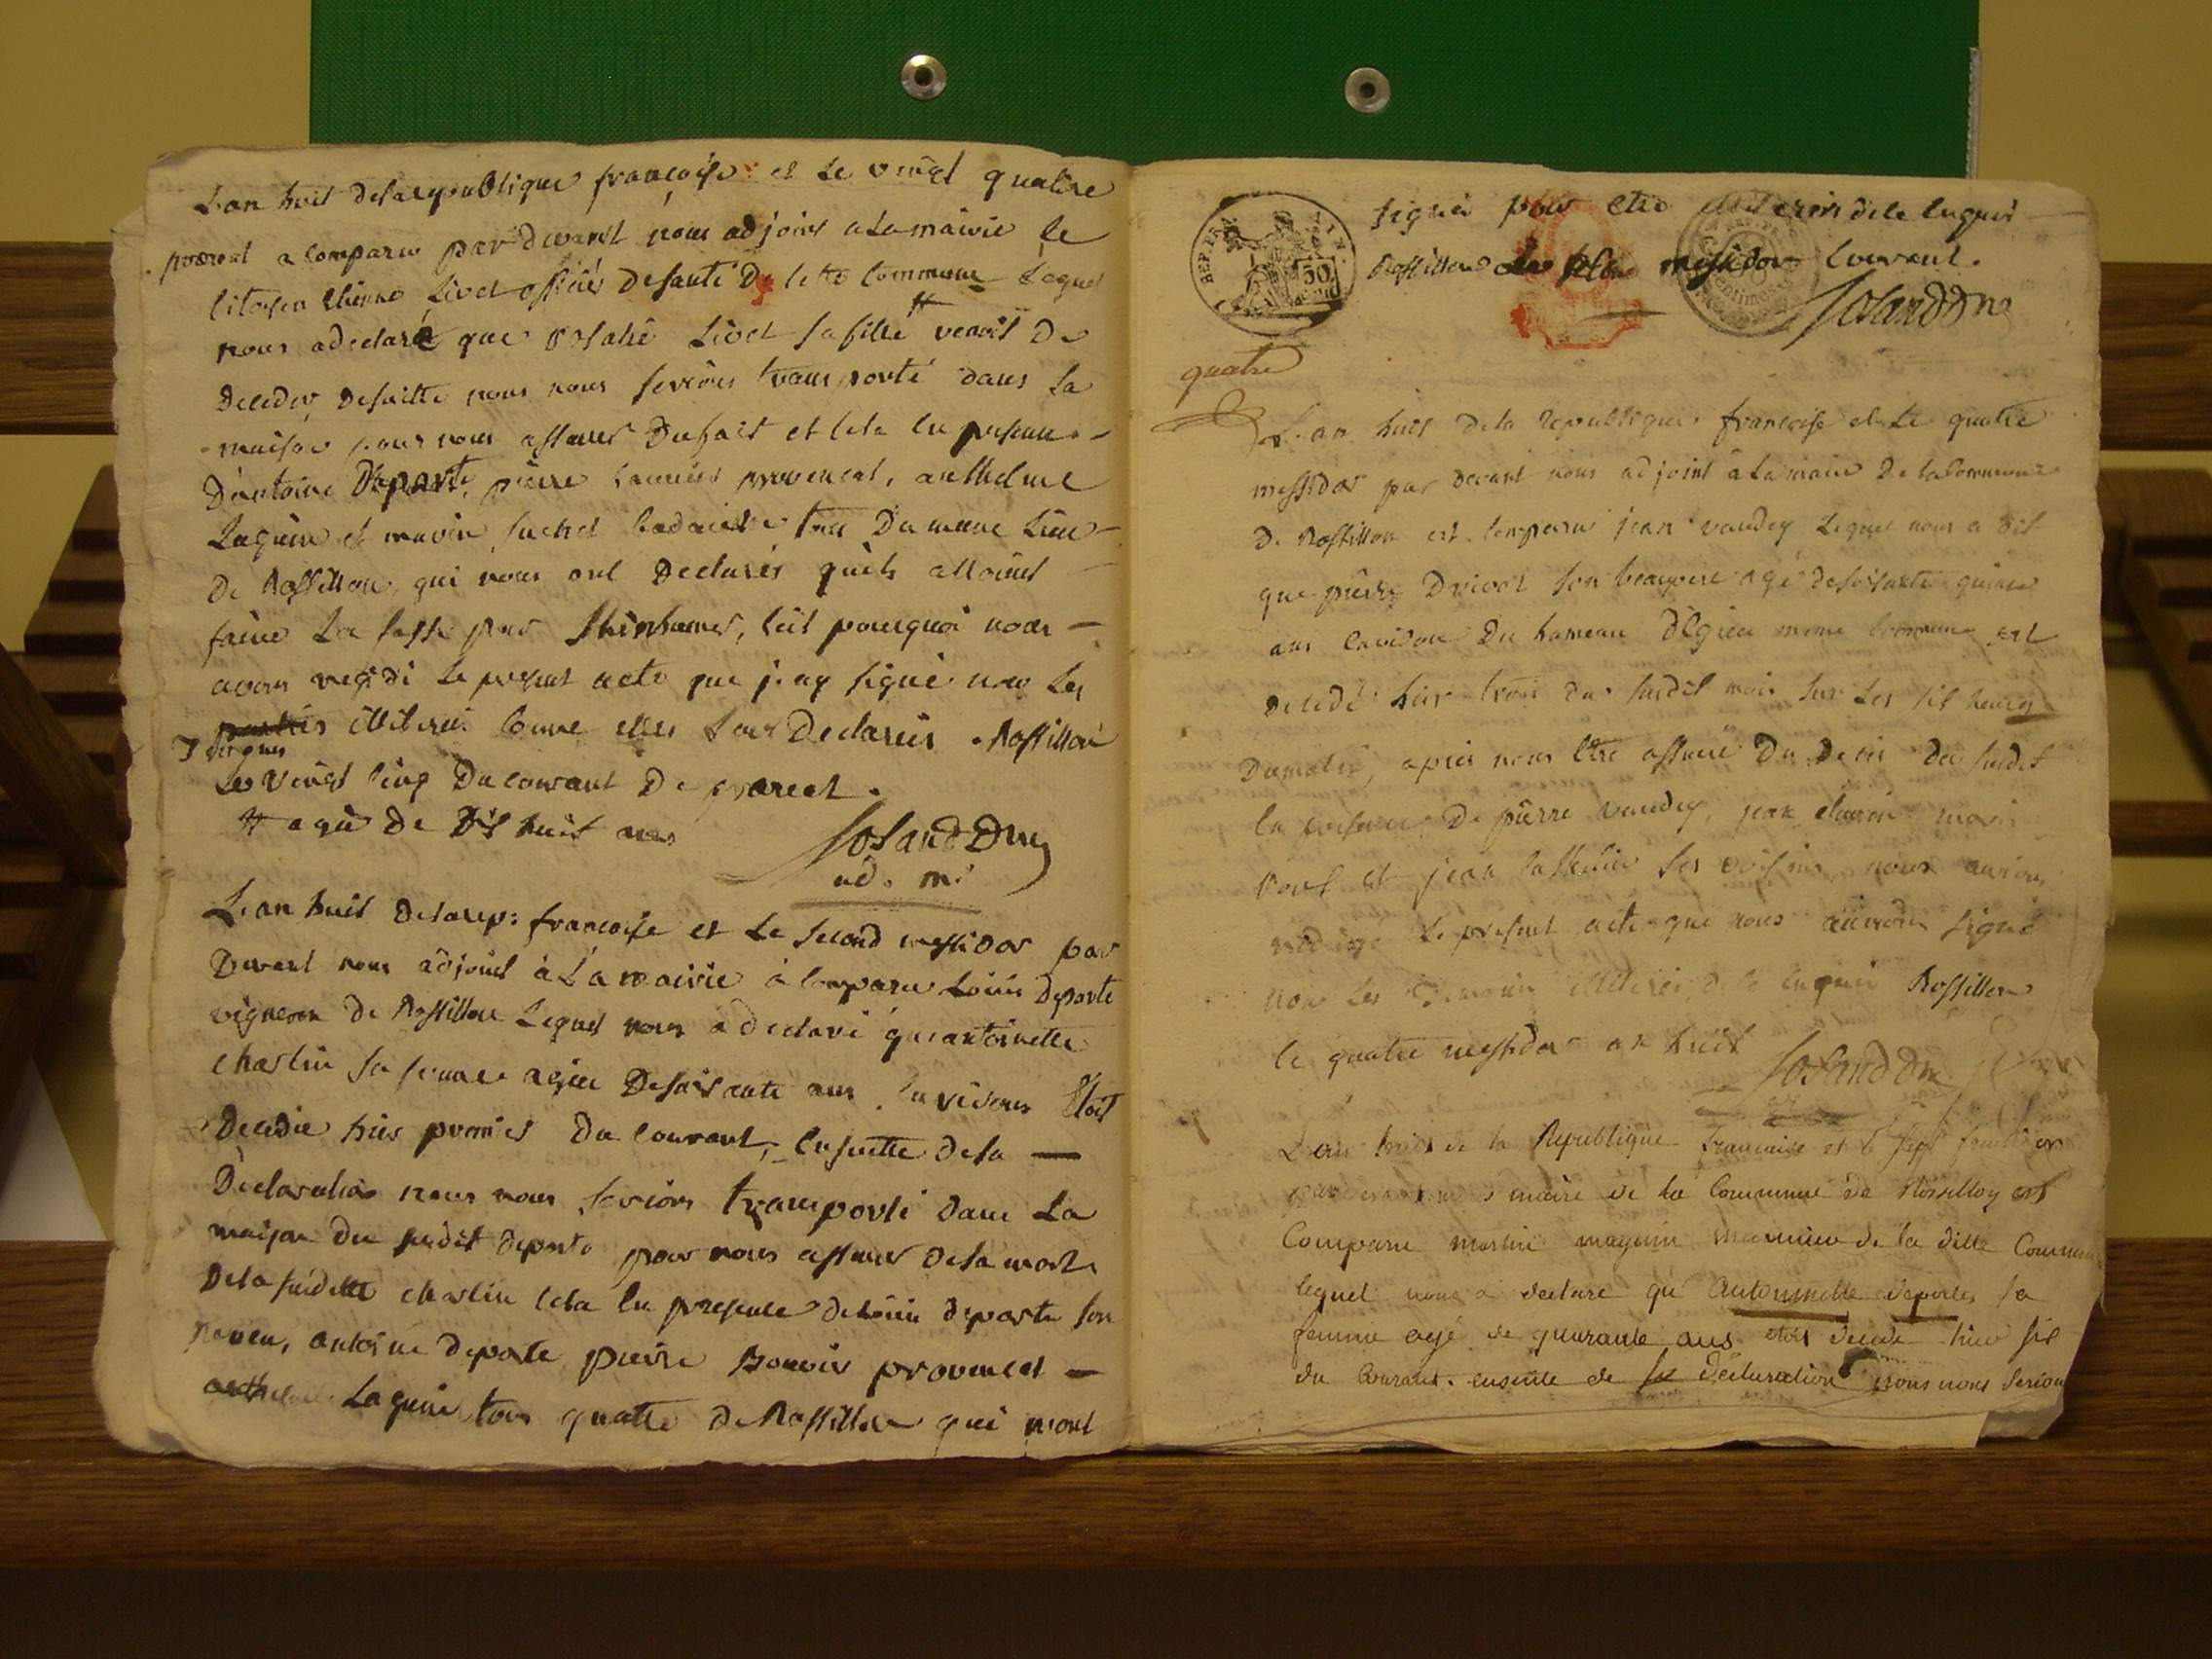 L'an huit de la republique françoise et le vingt quatre
prœreal a comparu par devant nous adjoint a la mairie le
citoyen Etienne Livet officier de santé De cette commune Lequel
nous a declaré que rosalie Livet sa fille # venoit De
deceder, de suitte nous nous serions transporté dans la
maison pour nous assurer du fait et cela en presance
D'antoine Deporte, pierre provencal, anthelme
Laguin et suchet tous Du meme Lieu
de Rossillon, qui nous ont Declarés qu'ils alloint
faire La fosse pour L'hinhumer, c'est pourquoi nous
avons redigé Le present acte que j'ay signé non Les
parties illiterés comme elles L'ont Declarés. Rossillon
de ce enquis
Les vingt cinq Du courant De prœreal.
# agée de Dix huit ans
Joland Dm
ad. m.
L'an huit de la rep: françoise et Le second messidor par
Devant nous adjoint à La mairie à comparu Louis Deporte
vigneron de Rossillon Lequel nous a declaré qu'antoinette
charlin sa femme agée De soixante ans environ Etoit
decedée hier premier du courant, ensuitte de sa
Declaration nous nous serions transporté dans La
maison du sudit deporte pour nous assurer de la mort
De la susditte charlin cela en presence de Louis deporte son
neveu, antoine deporte, pierre provencal
anthelme Laguin tous quatre de Rossillon qui n'ont
signer pour etre illiterés de ce enquis
Rossillon messidor courant.
Joland Dm
quatre
L'an huit de la republique françoise et Le quatre
messidor par devant nous adjoint à La mairie De la commune
De Rossillon est comparu jean vaudey Lequel nous a dit
que pierre Drivot son beaupere agé de soixante quinze
ans environ Du hameau D'Egieu meme commune est
decedé hier trois du susdit mois sur Les six heures
Du matin, apres nous etre assuré Du deces du susdit
en presence De pierre vaudey, jean
et jean ses voisins, nous aurions
redigé Le present acte que nous aurions signé
non Les temoins illiterés de ce enquis Rossillon
le quatre messidor an huit Joland Dm
L'an huit de la Republique francaise et le sept fructidor
par devant nous maire de la Commune de Rossillon est
Comparu martin maguin de la ditte Commune
lequel nous a declaré qu'Antoinette deportes sa
femme agé de quarante ans etoit decedé hier six
du Courant. ensuite de sa declaration nous nous serions